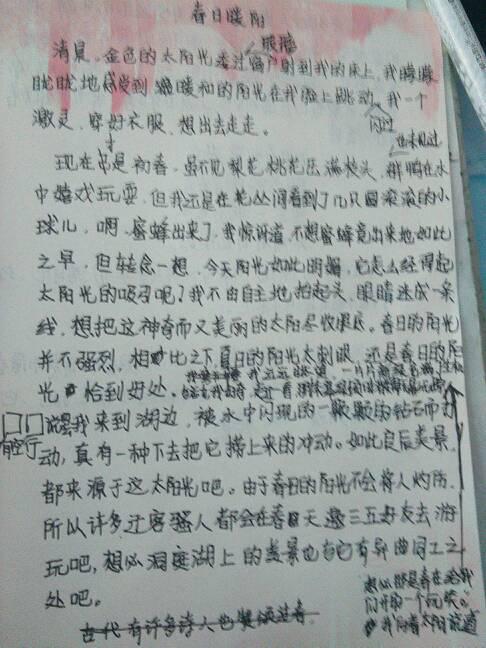 春日暖阳
眼睛
清晨，金色的太阳光透过窗户射到我的床上，我朦朦
胧胧地感受到暖和的阳光在我脸上跳动。我一个
激灵，穿好衣服，想出去走走。
也未见过
现在虽是初春，虽不见梨花桃花压满枝头，群鸭在水
中嬉戏玩耍，但我还是在花丛间看到了几只圆滚滚的小
球儿，啊，蜜蜂出来了，我惊讶道，不想蜜蜂竟出来地如此
之早，但转念一想，今天阳光如此明媚，它怎么经得起
太阳光的吸召呢？我不由自主地抬起头，眼睛迷成一条
线，想把这神奇而又美丽的太阳尽收眼底。春日的阳光
并不强烈，相比之下夏日的阳光太刺眼，还是春日的阳
光恰到好处。
我来到湖边，被水中闪现的一颗颗的钻石而打
动，真有一种下去把它捞上来的冲动。如此良辰美景，
都来源于这太阳光吧。由于春日的阳光不会将人灼伤，
所以许多迁客骚人都会在春天邀三五好友去游
玩吧，想必洞庭湖上的美景也有它有异曲同工之
处吧。
古代有许多诗人也
想必那是春在给我
们开的一个玩笑。
我向着太阳说道